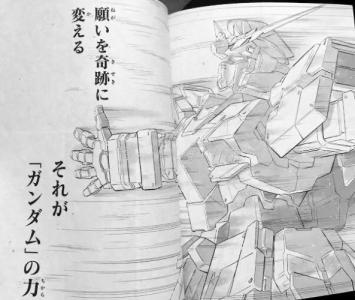 願いを奇跡に
変える
それが
「ガンダム」の力